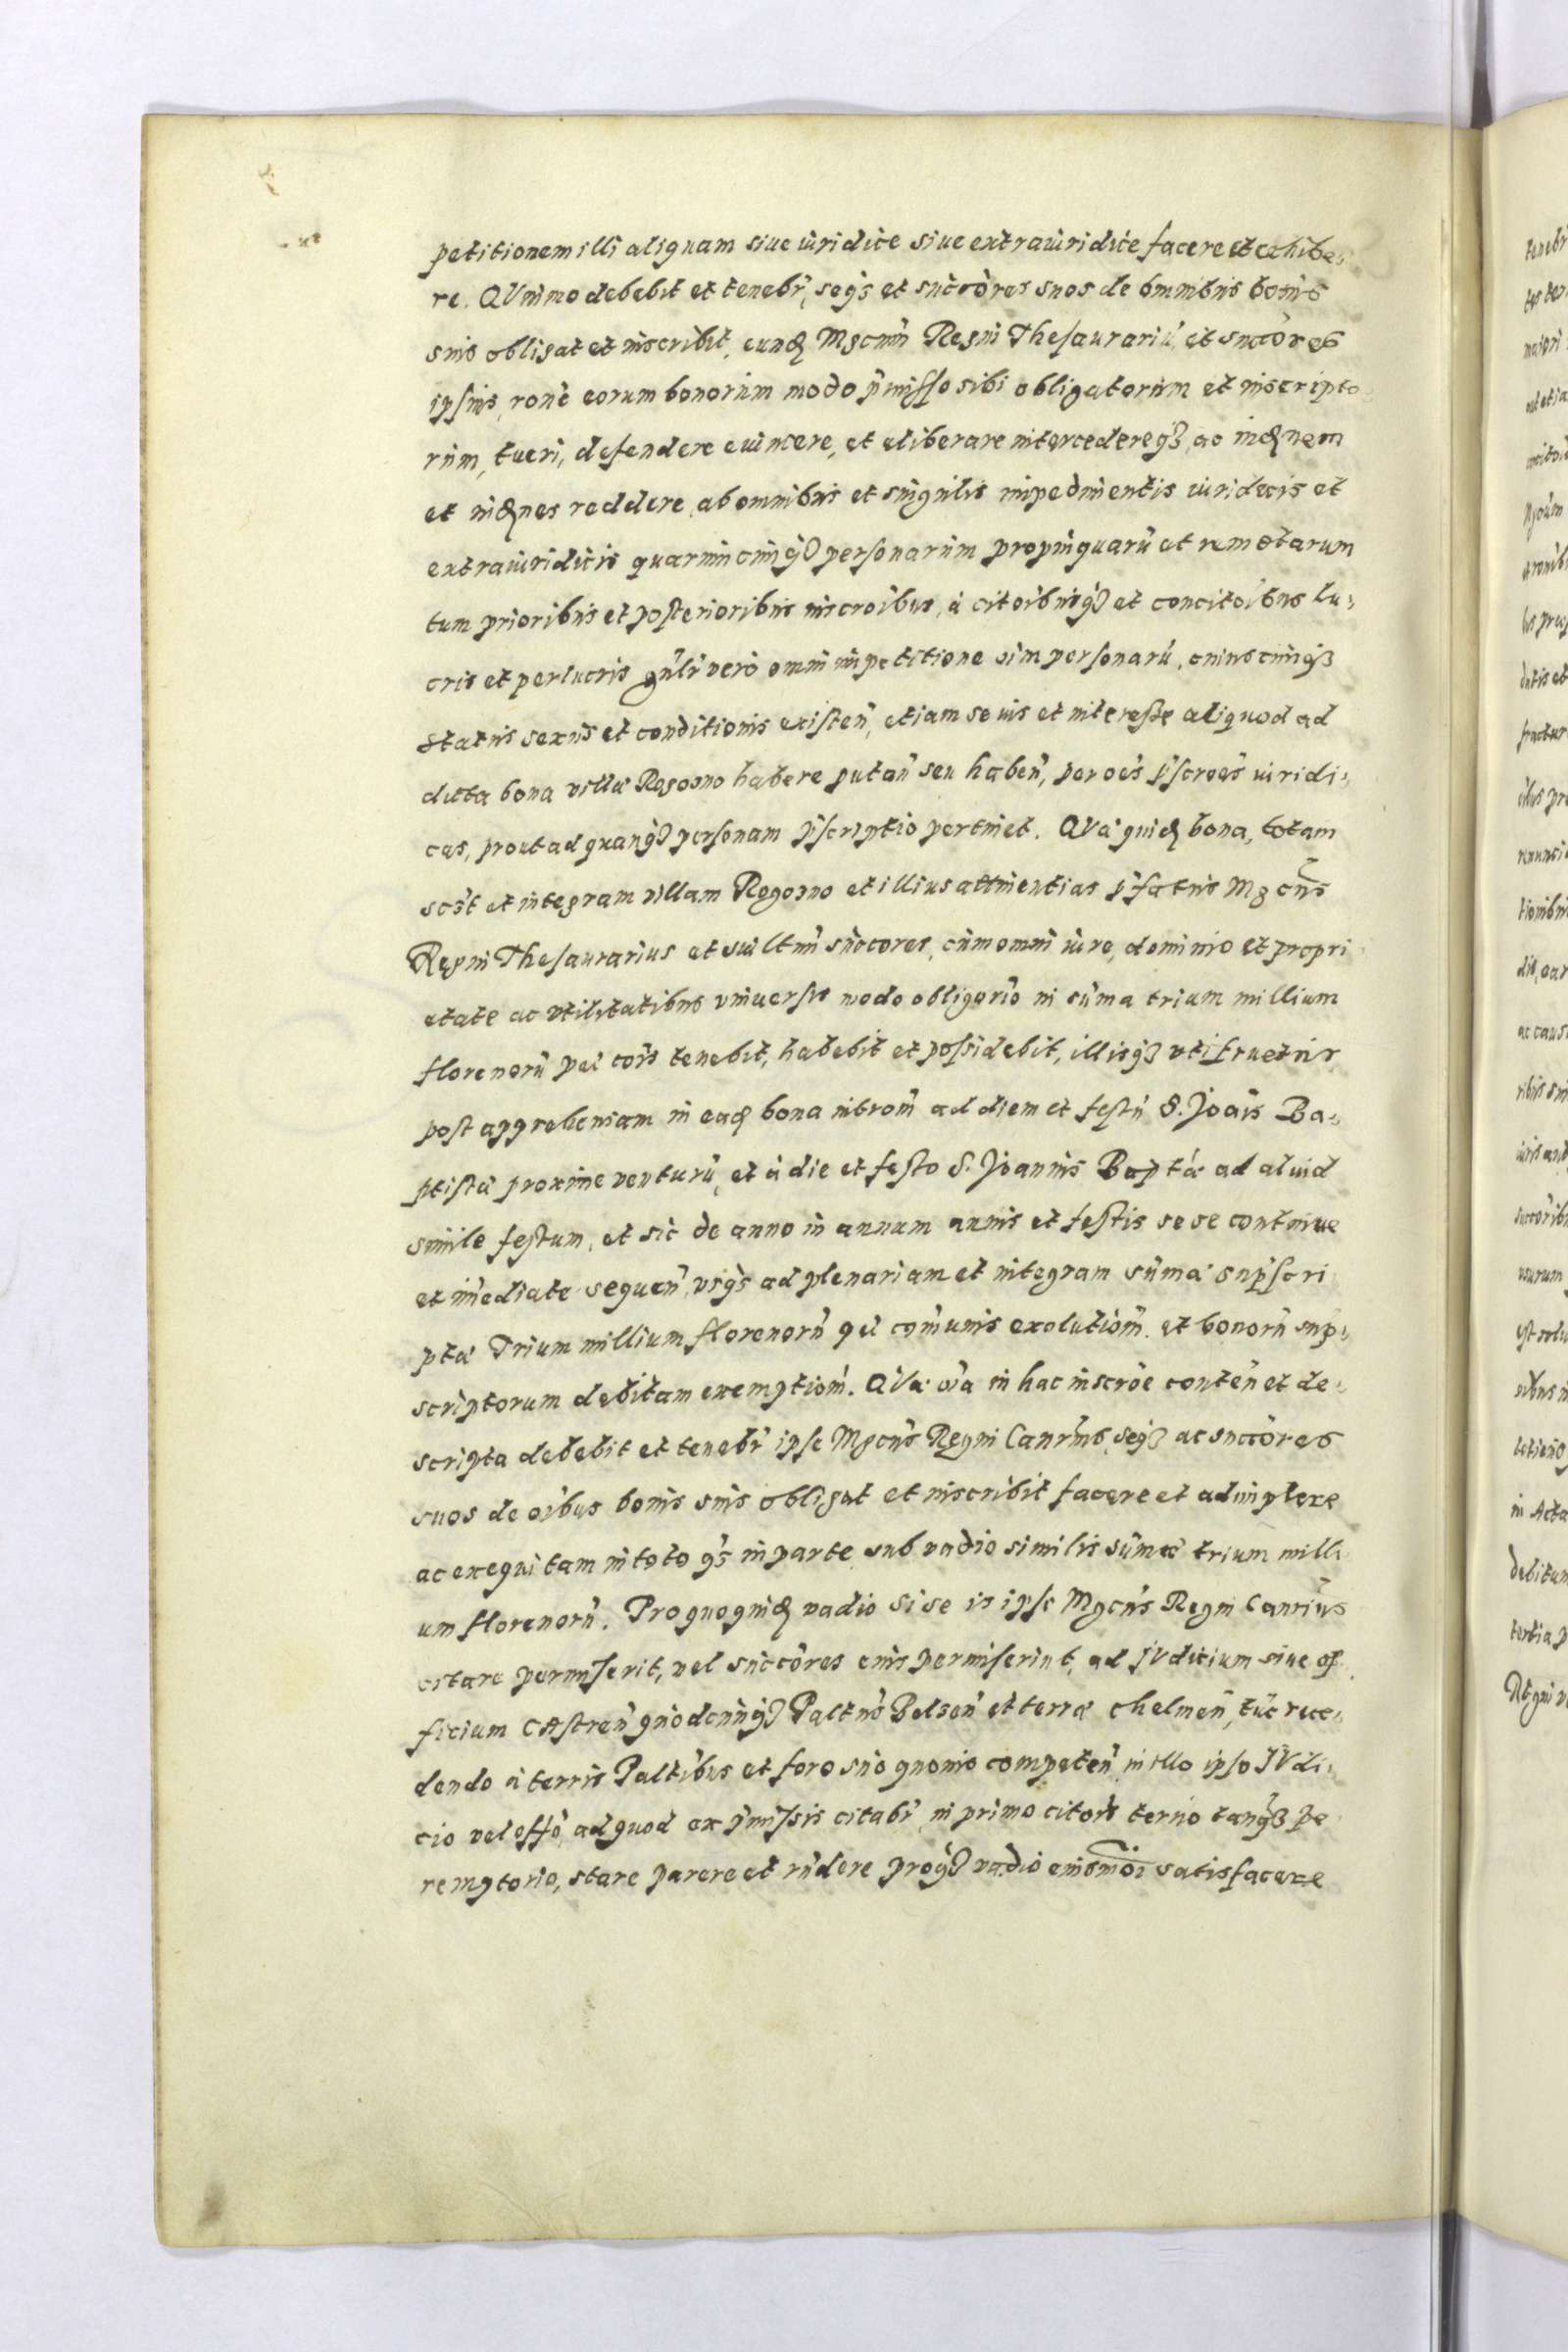 petitionem illi aliquam siue iuridice siue extraiuridice facere et exhibe,
re. QVinimo debebit et tenebr̃, seqs et succores suos de omnibus bonis
suis obligat et inscribit, eundẽ Mgcum Regni Thesaurariũ, et succores
ipsius, rone eorum bonorum modo p̃misso sibi obligatorum et inscripto
rum, tueri, defendere euincere, et eliberare intercedereqȝ, ac indẽnem
et indẽnes reddere, ab omnibus et singulis impedimentis iuridicis et
extraiuridicis quarumcunqȝ personarum propinquarũ et remotarum
tum prioribus et posterioribus inscroibus, à citoibusqȝ et concitoibus lu,
cris et perlucris gnlr̃ vero omni impetitione oim personarũ, cuiuscunqȝ
status sexus et conditionis existeñ, etiam se uis et interesse aliquod ad
dicta bona villæ Rogozno habere putañ seu habeñ, per oẽs p̃scroẽs iuridi,
cas, prout ad quamqȝ personam p̃scriptio pertinet. QVæ quidẽ bona, totam
sc̃t et integram villam Rogozno et illius attinentias p̃fatus Mgcus
Regni Thesaurarius et sui ltmi succores, cum omni iure, dominio et propri
etate ac vtilitatibus vniuersis modo obligorio in sũma trium millium
florenorũ pec̃ cois tenebit, habebit et possidebit, illisqȝ vtifruetur,
post apprehensam in eadẽ bona introm̃ ad diem et festũ S. Joañis Ba,
ptistæ proxime venturũ, et à die et festo S. Joannis Baptæ ad aliud
simile festum, et sic de anno in annum annis et festis sese continue
et imediate sequeñ, vsqs ad plenariam et integram sũmæ sup̃scri
ptæ Trium millium florenorũ pec̃ comunis exolutiom̃. et bonorũ sup̃,
scriptorum debitam exemptiom̃. QVæ oĩa in hac inscroe conteñ et de,
scripta debebit et tenebr̃ ipse Mgcus Regni Canrius, seqȝ ac succores
suos de oĩbus bonis suis obligat et inscribit facere et adimplere
ac exequi tam in toto qs̃ in parte sub vadio similis sũmæ trium milli
um florenorũ. Pro quoquidẽ vadio si se is ipse Mgcus Regni Canrius
citare permiserit, vel succores eius permiserint, ad JVdicium siue of
ficium Castreñ quodcunqȝ Paltus Belseñ et terræ Chelmeñ, tũc rece,
dendo à terris Paltibus et foro suo quouis competeñ in illo ipso JVdi,
cio vel offo, ad quod ex p̃missis citabr̃, in primo citois termo tanqȝ pe
remptorio, stare parere et rñdere proqȝ vadio eiusmoi satisfacere